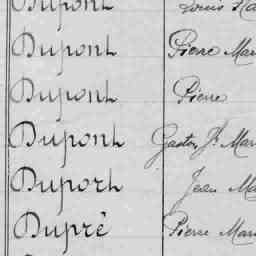 Dupont Louis
Dupont Pierre Mar
Dupont Pierre
Dupont Gaston Jh Mar
Duport Jean Ma
Dupré Pierre Mari